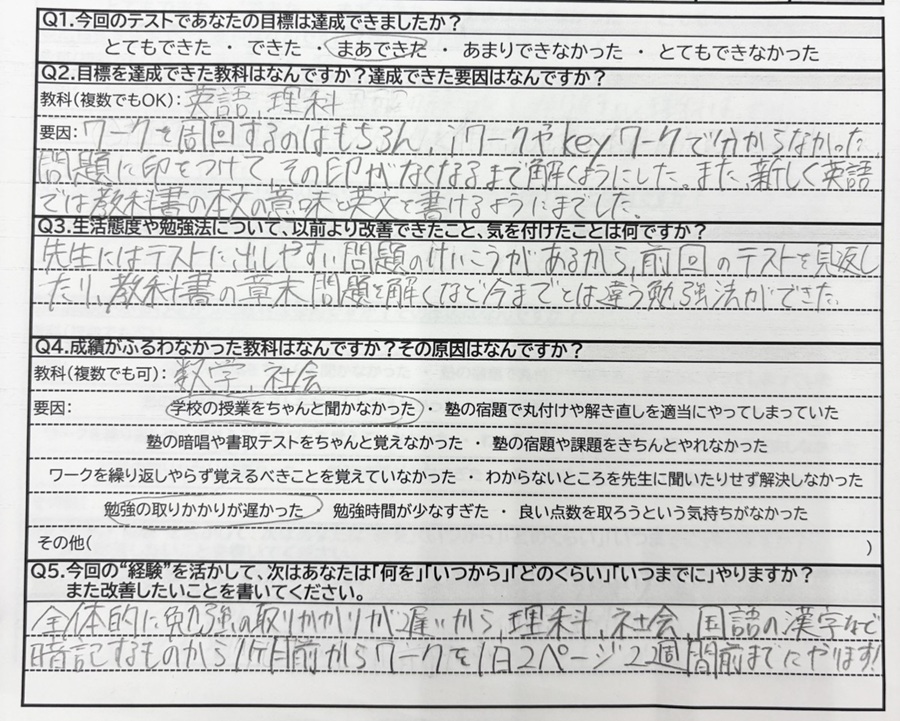 Q1.今回のテストであなたの目標は達成できましたか？
とてもできた ・ できた ・ まあできた ・ あまりできなかった ・ とてもできなかった
Q2.目標を達成できた教科はなんですか？達成できた要因はなんですか？
教科(複数でもOK)：英語 理科
要因：ワークを周回するのはもちろん、iワークやkeyワークで分からなかった
問題に印をつけて、その印がなくなるまで解くようにした。また、新しく英語
では教科書の本文の意味と英文を書けるようにまでした。
Q3.生活態度や勉強法について、以前より改善できたこと、気を付けたことは何ですか？
先生にはテストに出しやすい問題のけいこうがあるから、前回のテストを見返し
たり、教科書の章末問題を解くなど今までとは違う勉強法ができた。
Q4.成績がふるわなかった教科はなんですか？その原因はなんですか？
教科(複数でも可)：数学、社会
要因： 学校の授業をちゃんと聞かなかった ・ 塾の宿題で丸付けや解き直しを適当にやってしまっていた
塾の暗唱や書取テストをちゃんと覚えなかった ・ 塾の宿題や課題をきちんとやれなかった
ワークを繰り返しやらず覚えるべきことを覚えていなかった ・ わからないところを先生に聞いたりせず解決しなかった
勉強の取りかかりが遅かった ・ 勉強時間が少なすぎた ・ 良い点数を取ろうという気持ちがなかった
その他( )
Q5.今回の“経験”を活かして、次はあなたは「何を」「いつから」「どのくらい」「いつまでに」やりますか？
また改善したいことを書いてください。
全体的に勉強の取りかかりが遅いから、理科、社会、国語の漢字など
暗記するものから1ヶ月前からワークを1日2ページ2週間前までにやります!